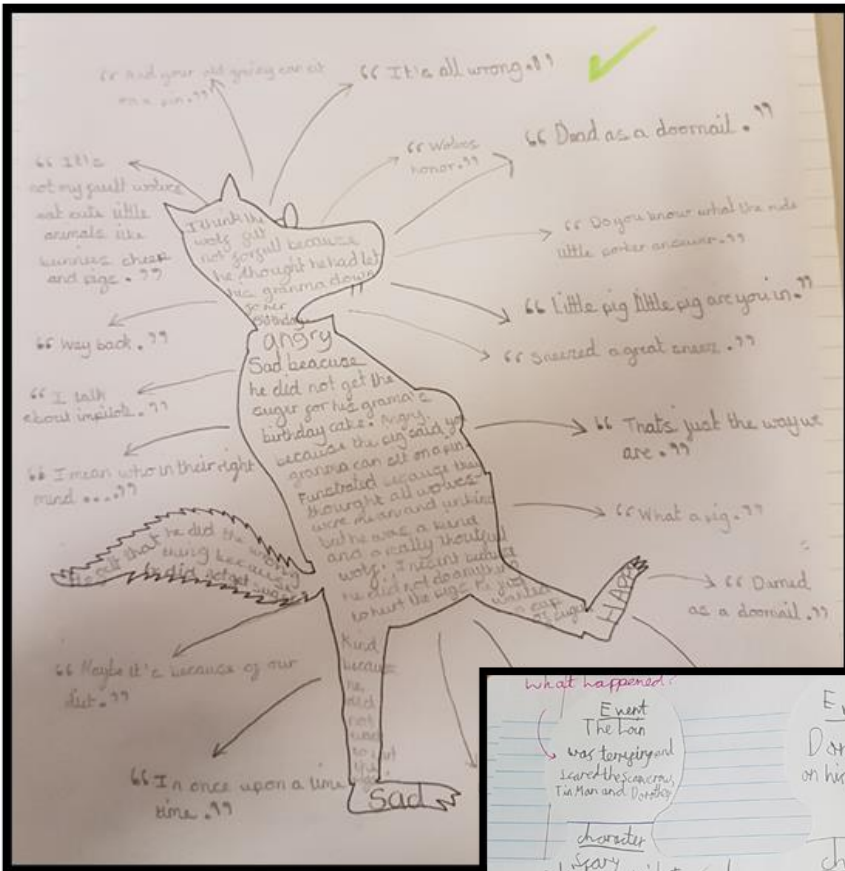 "And your old granny can sit
on a pin."
"It's all wrong."
"Dead as a doornail."
"Wolves
honor."
"It's
not my fault wolves
eat cute little
animals like
bunnies cheep
and pigs."
"Do you know what the rude
little porker answer."
"Little pig little pig are you in."
"Way back."
"sneezed a great sneez."
"I talk
about inpilots."
"Thats just the way we
are."
"I mean who in their right
mind ...."
"What a pig."
"Darned
as a doornail."
"Maybe it's because of our
diet."
"In once upon a time
time."
I think the
wolf felt
not
because
he thought he had let
his granma down
birthday
angry
Sad beacuse
he did not get the
suger for his grama's
birthday cake. Angry
because the pig said you
granma can sit on a pin.
Funstrated because they
thought all wolves
were mean and unkind
but he was a kind
and a really
wolf. Inocent because
he did not do anything
to hurt the pigs. he just
wanted
a cup
of sugar
HAPPY
He felt that he did the wrong
thing because
he did not get
Kind
because
he
did
not
want
to hurt
the
Sad
What happened?
Event
The Loin
was terrying and
scared the scarecrow,
Tin Man and Dorothy
character
Scary
on his